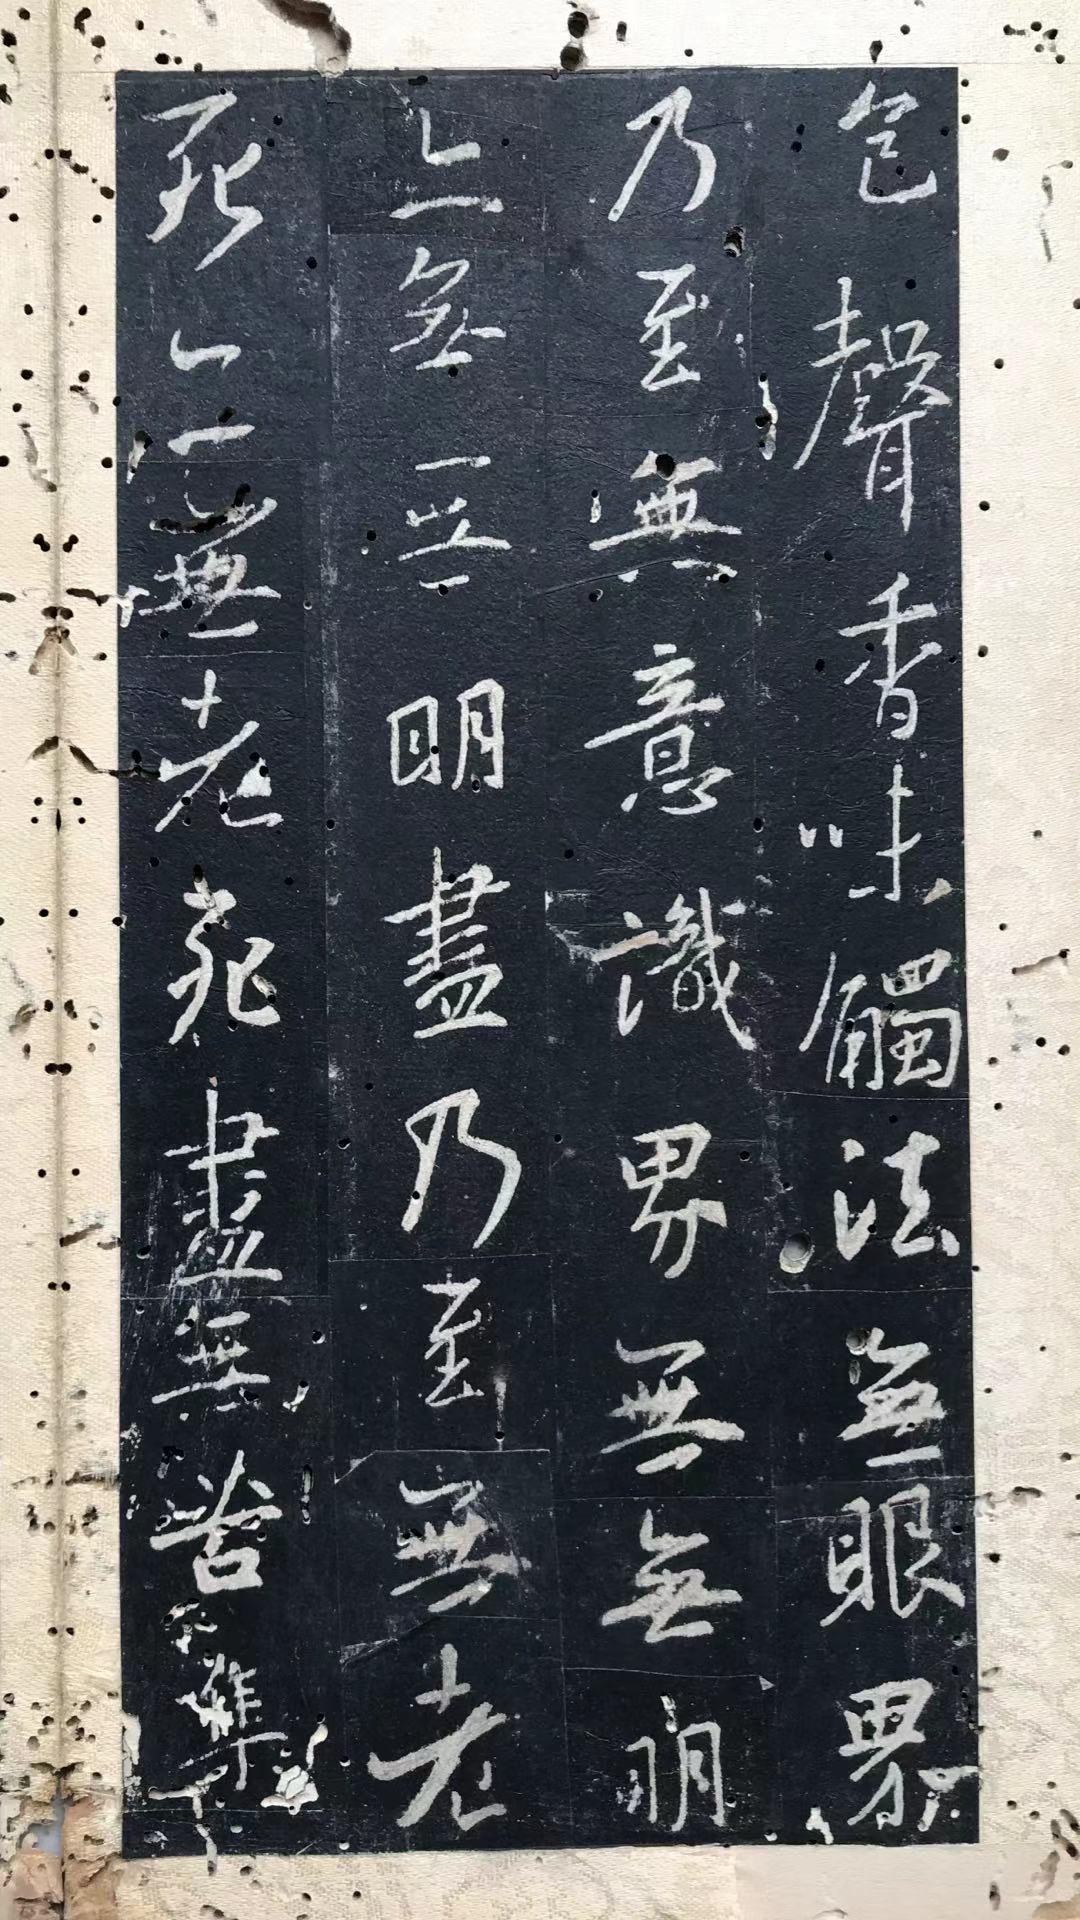 色聲香味觸法無眼界
乃至無意識界無無明
亡無無明盡乃至無老
死亡無老死盡無苦集